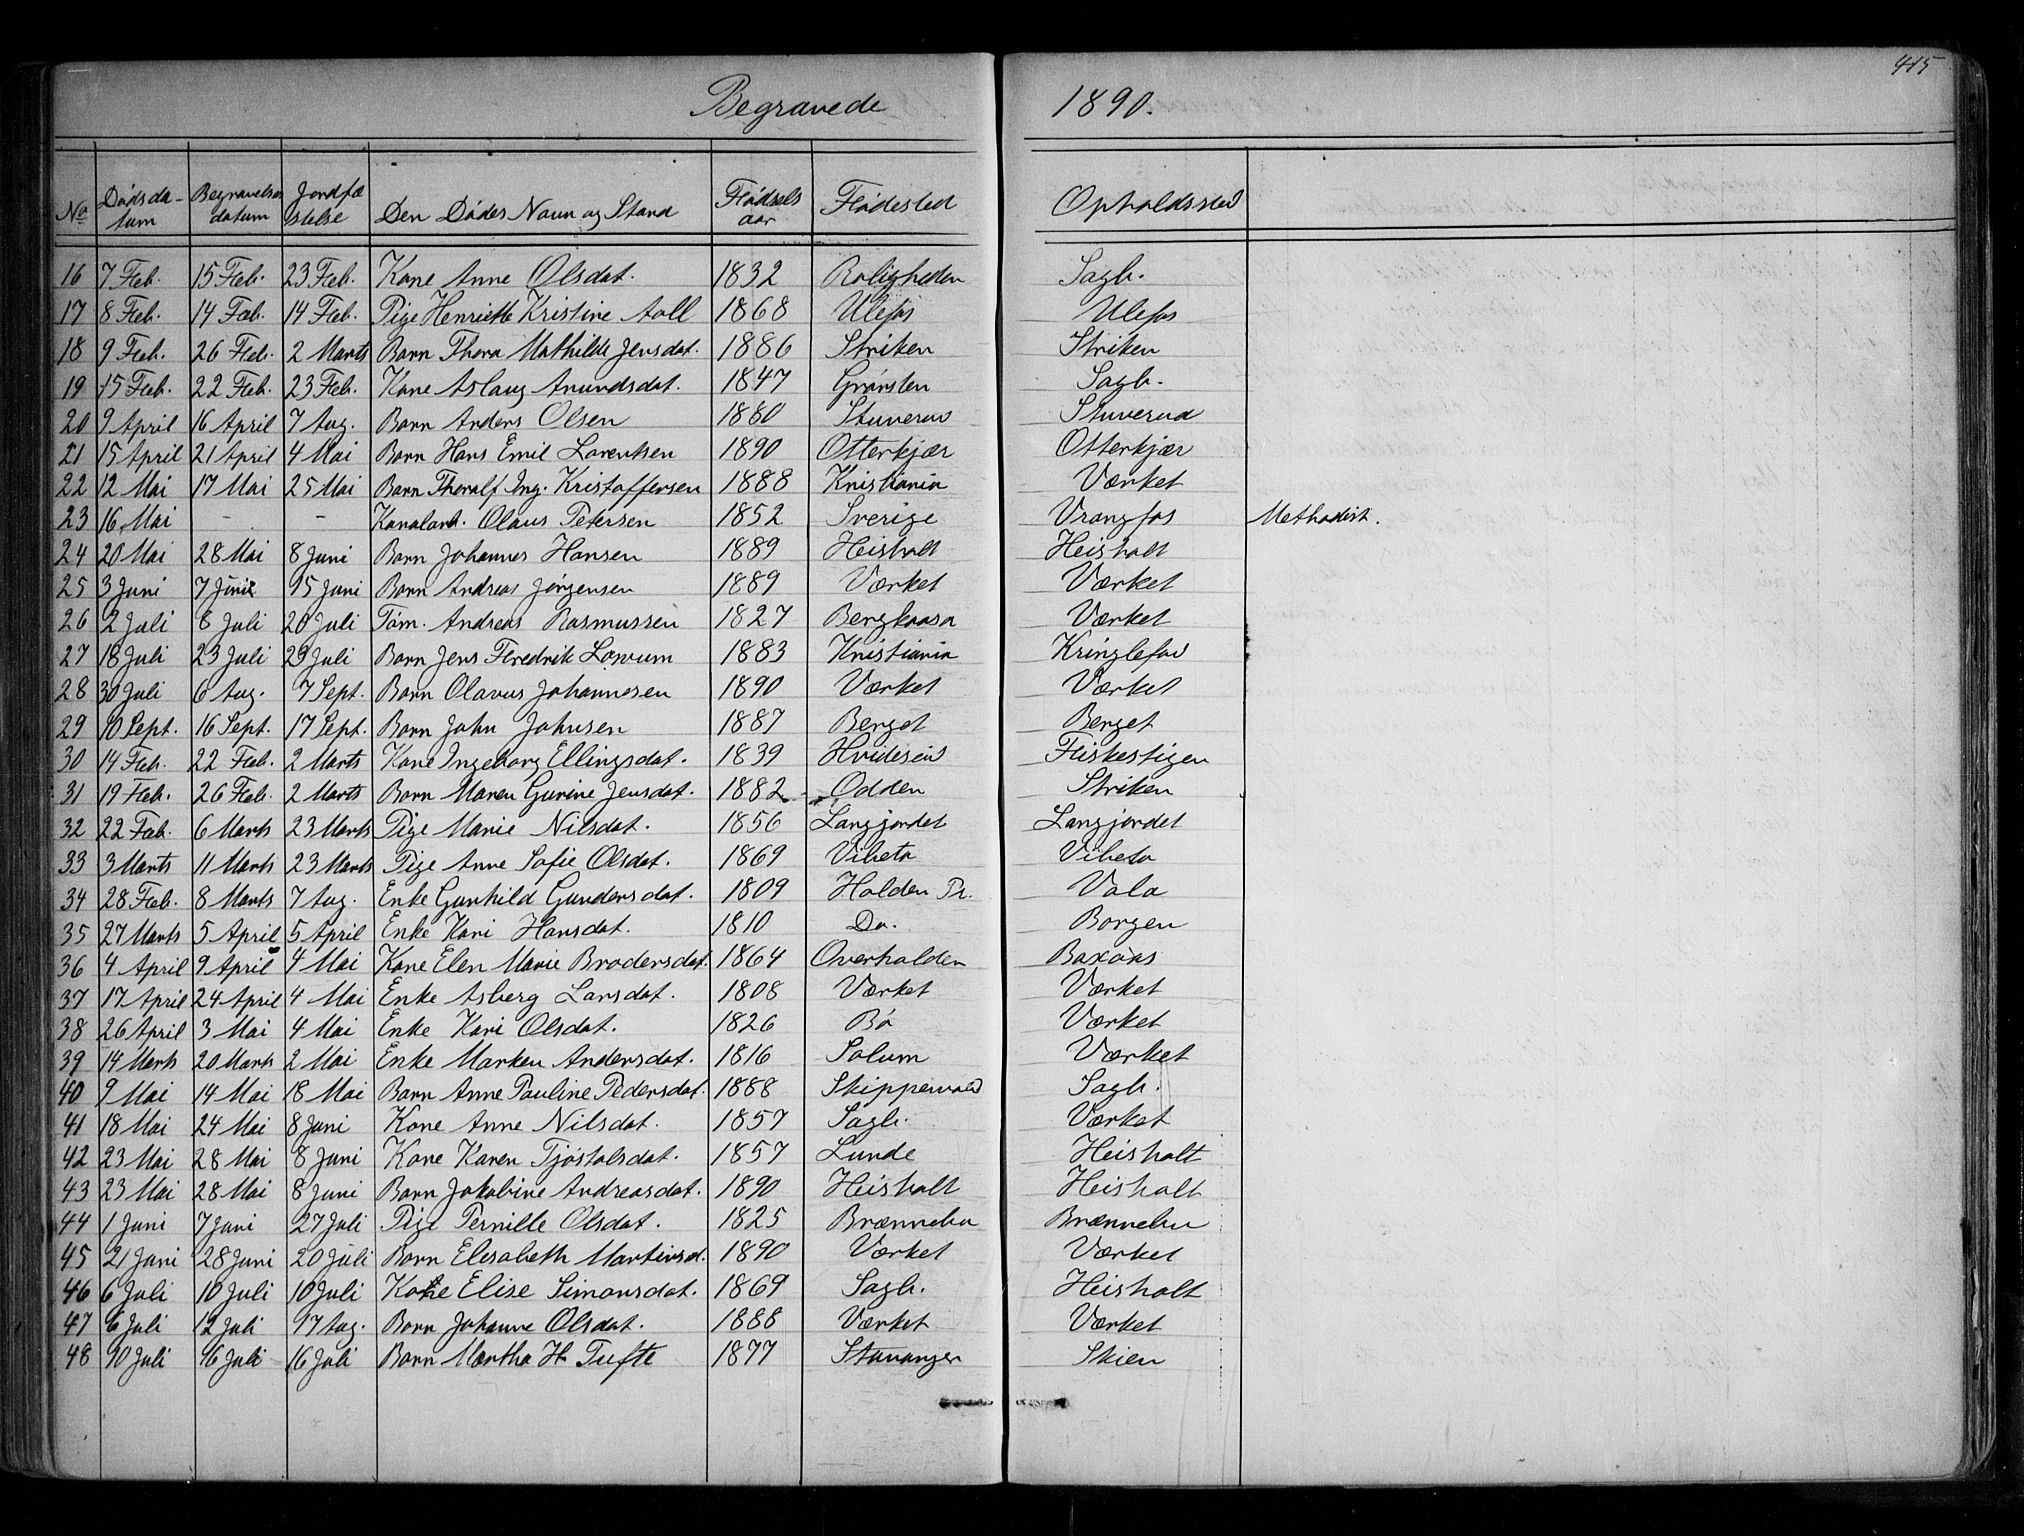 415
Begravede 1890.
No Dødsdatum Begravelsesdatum Jordfæstelse Den Dødes Navn og Stand Fødselsaar Fødested Opholdssted
16 7 Feb. 15 Feb. 23 Feb. Kone Anne Olsdat. 1832 Roligheden Sagb.
17 8 Feb. 14 Feb. 14 Feb. Pige Henriette Kristine Aall 1868 Ulefos Ulefos
18 9 Feb. 26 Feb. 2 Marts Barn Thora Mathilde Jensdat. 1886 Striken Striken
19 15 Feb. 22 Feb. 23 Feb. Kone Aslaug Anundsdat. 1847 Grønsten Sagb.
20 9 April 16 April 7 Aug. Barn Anders Olsen 1880 Stuverud Stuverud
21 15 April 21 April 4 Mai Barn Hans Emil Lorentsen 1890 Otterkjær Otterkjær
22 12 Mai 17 Mai 25 Mai Barn Thoralf Ing. Kristoffersen 1888 Kristiania Værket
23 16 Mai - - Kanalarb. Olaus Petersen 1852 Sverige Vrangfos Methodist.
24 20 Mai 28 Mai 8 Juni Barn Johannes Hansen 1889 Heisholt Heisholt
25 3 Juni 7 Juni 15 Juni Barn Andreas Jørgensen 1889 Værket Værket
26 2 Juli 8 Juli 20 Juli Tøm. Andreas Rasmussen 1827 Bergkaasa Værket
27 18 Juli 23 Juli 29 Juli Barn Jens Fredrik 1883 Kristiania Kringlefos
28 30 Juli 6 Aug. 7 Sept. Barn Olavus Johannesen 1890 Værket Værket
29 10 Sept. 16 Sept. 17 Sept. Barn John Johnsen 1887 Berget Berget
30 14 Feb. 22 Feb. 2 Marts Kone Ingeborg Ellingsdat. 1839 Hvideseid Fiskestigen
31 19 Feb. 26 Feb. 2 Marts Barn Maren Gurine Jensdat. 1882 Odden Striken
32 22 Feb. 6 Marts 23 Marts Pige Marie Nilsdat. 1856 Langjordet Langjordet
33 3 Marts 11 Marts 23 Marts Pige Anne Sofie Olsdat. 1869 Vibeto Vibeto
34 28 Feb. 8 Marts 7 Aug. Enke Gunhild Gundersdat. 1809 Holden Pr. Vala
35 27 Marts 5 April 5 April Enke Kari Hansdat. 1810 Do. Borgen
36 4 April 9 April 4 Mai Kone Elen Marie Brodersdat. 1864 Overholden Baxaas
37 17 April 24 April 4 Mai Enke Asberg Larsdat. 1808 Værket Værket
38 26 April 3 Mai 4 Mai Enke Kari Olsdat. 1826 Bø Værket
39 14 Marts 20 Marts 2 Mai Enke Marken Andersdat. 1816 Solum Værket
40 9 Mai 14 Mai 18 Mai Barn Anne Pauline Pedersdat. 1888 Skippervold Sagb.
41 18 Mai 24 Mai 8 Juni Kone Anne Nilsdat. 1857 Sagb. Værket
42 23 Mai 28 Mai 8 Juni Kone Karen Tjøstolsdat. 1857 Lunde Heisholt
43 23 Mai 28 Mai 8 Juni Barn Jakobine Andreasdat. 1890 Heisholt Heisholt
44 1 Juni 7 Juni 27 Juli Pige Pernille Olsdat. 1825 Brænnebu Brænnebu
45 21 Juni 28 Juni 20 Juli Barn Elisabeth Martinsd. 1890 Værket Værket
46 6 Juli 10 Juli 10 Juli Kone Elise Simonsdat. 1869 Sagb. Heisholt
47 6 Juli 12 Juli 17 Aug. Barn Johanne Olsdat. 1888 Værket Værket
48 10 Juli 16 Juli 16 Juli Barn Martha H. Tufte 1877 Stavanger Skien